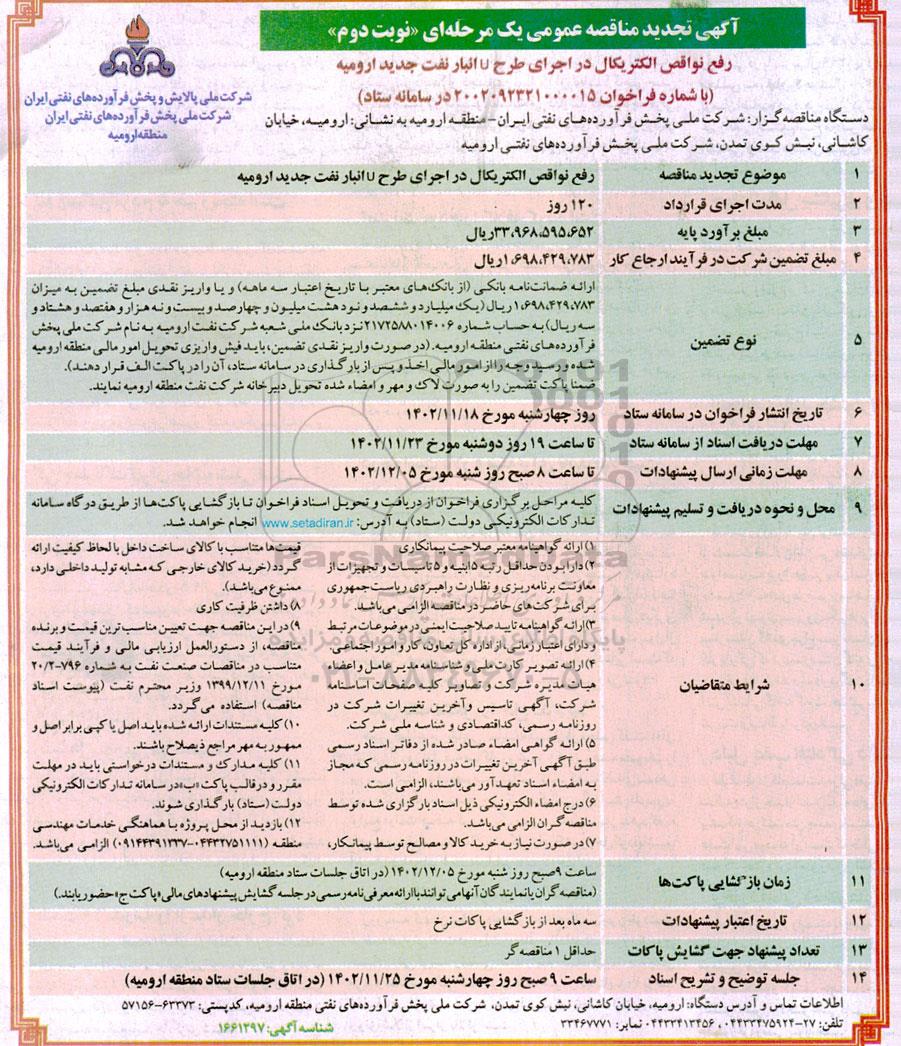 آگهی تجدید مناقصه عمومی یک مرحله‌ای «نوبت دوم»
رفع نواقص الکتریکال در اجرای طرح U انبار نفت جدید ارومیه
(با شماره فراخوان ۲۰۰۲۰۹۲۳۲۱۰۰۰۰۱۵ در سامانه ستاد)
شرکت ملی پالایش و پخش فرآورده‌های نفتی ایران
شرکت ملی پخش فرآورده‌های نفتی ایران
منطقه ارومیه
دستگاه مناقصه‌گزار: شرکت ملی پخش فرآورده‌های نفتی ایران- منطقه ارومیه به نشانی: ارومیه، خیابان
کاشانی، نبش کوی تمدن، شرکت ملی پخش فرآورده‌های نفتی ارومیه
۱ موضوع تجدید مناقصه رفع نواقص الکتریکال در اجرای طرح U انبار نفت جدید ارومیه
۲ مدت اجرای قرارداد ۱۲۰ روز
۳ مبلغ برآورد پایه ۳۳،۹۶۸،۵۹۵،۶۵۲ریال
۴ مبلغ تضمین شرکت در فرآیند ارجاع کار ۱،۶۹۸،۴۲۹،۷۸۳ریال
۵ نوع تضمین
ارائه ضمانت‌نامه بانکی (از بانک‌های معتبر با تاریخ اعتبار سه ماهه) و یا واریز نقدی مبلغ تضمین به میزان
۱،۶۹۸،۴۲۹،۷۸۳ ریال (یک میلیارد و ششصد و نود هشت میلیون و چهارصد و بیست و نه هزار و هفتصد و هشتاد و
سه ریال) به حساب شماره ۲۱۷۲۵۸۸۰۱۴۰۰۶ نزد بانک ملی شعبه شرکت نفت ارومیه به نام شرکت ملی پخش
فرآورده‌های نفتی منطقه ارومیه. (در صورت واریز نقدی تضمین، باید فیش واریزی تحویل امور مالی منطقه ارومیه
شده و رسید وجه را از امور مالی اخذ و پس از بارگذاری در سامانه ستاد، آن را در پاکت الف قرار دهند).
ضمنا پاکت تضمین را به صورت لاک و مهر و امضاء شده تحویل دبیرخانه شرکت نفت منطقه ارومیه نمایند.
۶ تاریخ انتشار فراخوان در سامانه ستاد روز چهارشنبه مورخ ۱۴۰۲/۱۱/۱۸
۷ مهلت دریافت اسناد از سامانه ستاد تا ساعت ۱۹ روز دوشنبه مورخ ۱۴۰۲/۱۱/۲۳
۸ مهلت زمانی ارسال پیشنهادات تا ساعت ۸ صبح روز شنبه مورخ ۱۴۰۲/۱۲/۰۵
۹ محل و نحوه دریافت و تسلیم پیشنهادات
کلیه مراحل برگزاری فراخوان از دریافت و تحویل اسناد فراخوان تا بازگشایی پاکت‌ها از طریق درگاه سامانه
تدارکات الکترونیکی دولت (ستاد) به آدرس: www.setadiran.ir انجام خواهد شد.
۱۰ شرایط متقاضیان
۱) ارائه گواهینامه معتبر صلاحیت پیمانکاری
۲) دارا بودن حداقل رتبه ۵ ابنیه و ۵ تاسیسات و تجهیزات از
معاونت برنامه‌ریزی و نظارت راهبردی ریاست جمهوری
برای شرکت‌های حاضر در مناقصه الزامی می‌باشد.
۳) ارائه گواهینامه تایید صلاحیت ایمنی در موضوعات مرتبط
و دارای اعتبار زمانی، از اداره کل تعاون، کار و امور اجتماعی.
۴) ارائه تصویر کارت ملی و شناسنامه مدیر عامل و اعضاء
هیات مدیره شرکت و تصاویر کلیه صفحات اساسنامه
شرکت، آگهی تاسیس و آخرین تغییرات شرکت در
روزنامه رسمی، کد اقتصادی و شناسه ملی شرکت.
۵) ارائه گواهی امضاء صادر شده از دفاتر اسناد رسمی
طبق آگهی آخرین تغییرات در روزنامه رسمی که مجاز
به امضاء اسناد تعهدآور می‌باشند، الزامی است.
۶) درج امضاء الکترونیکی ذیل اسناد بارگزاری شده توسط
مناقصه گران الزامی می‌باشد.
۷) در صورت نیاز به خرید کالا و مصالح توسط پیمانکار،
قیمت‌ها متناسب با کالای ساخت داخل با لحاظ کیفیت ارائه
گردد (خرید کالای خارجی که مشابه تولید داخلی دارد،
ممنوع می‌باشد).
۸) داشتن ظرفیت کاری
۹) در این مناقصه جهت تعیین مناسب ترین قیمت و برنده
مناقصه، از دستورالعمل ارزیابی مالی و فرآیند قیمت
متناسب در مناقصات صنعت نفت به شماره ۲۰/۲-۷۹۶
مورخ ۱۳۹۹/۱۲/۱۱ وزیر محترم نفت (پیوست اسناد
مناقصه) استفاده می‌گردد.
۱۰) کلیه مستندات ارائه شده باید اصل یا کپی برابر اصل و
ممهور به مهر مراجع ذیصلاح باشند.
۱۱) کلیه مدارک و مستندات درخواستی باید در مهلت
مقرر و در قالب پاکت «ب» در سامانه تدارکات الکترونیکی
دولت (ستاد) بارگذاری شوند.
۱۲) بازدید از محل پروژه با هماهنگی خدمات مهندسی
منطقه (۰۴۴۳۲۷۵۱۱۱۱-۰۹۱۴۴۳۹۱۳۳۷) الزامی می‌باشد.
۱۱ زمان بازگشایی پاکت‌ها
ساعت ۹صبح روز شنبه مورخ ۱۴۰۲/۱۲/۰۵ (در اتاق جلسات ستاد منطقه ارومیه)
(مناقصه گران یا نمایندگان آنها می توانند با ارائه معرفی نامه رسمی در جلسه گشایش پیشنهادهای مالی «پاکت ج» حضور یابند).
۱۲ تاریخ اعتبار پیشنهادات سه ماه بعد از بازگشایی پاکات نرخ
۱۳ تعداد پیشنهاد جهت گشایش پاکات حداقل ۱ مناقصه گر
۱۴ جلسه توضیح و تشریح اسناد ساعت ۹ صبح روز چهارشنبه مورخ ۱۴۰۲/۱۱/۲۵ (در اتاق جلسات ستاد منطقه ارومیه)
اطلاعات تماس و آدرس دستگاه: ارومیه، خیابان کاشانی، نبش کوی تمدن، شرکت ملی پخش فرآورده‌های نفتی منطقه ارومیه، کدپستی: ۶۳۳۷۳-۵۷۱۵۶
تلفن: ۲۷-۰۴۴۳۳۴۷۵۹۲۴، ۰۴۴۳۳۴۱۳۴۵۶ نمابر: ۳۳۴۶۷۷۷۱
شناسه آگهی: ۱۶۶۱۲۹۷
ParsNamadData
پایگاه اطلاع رسانی مناقصه و مزایده
۰۲۱-۸۸۳۴۹۶۷۰-۵